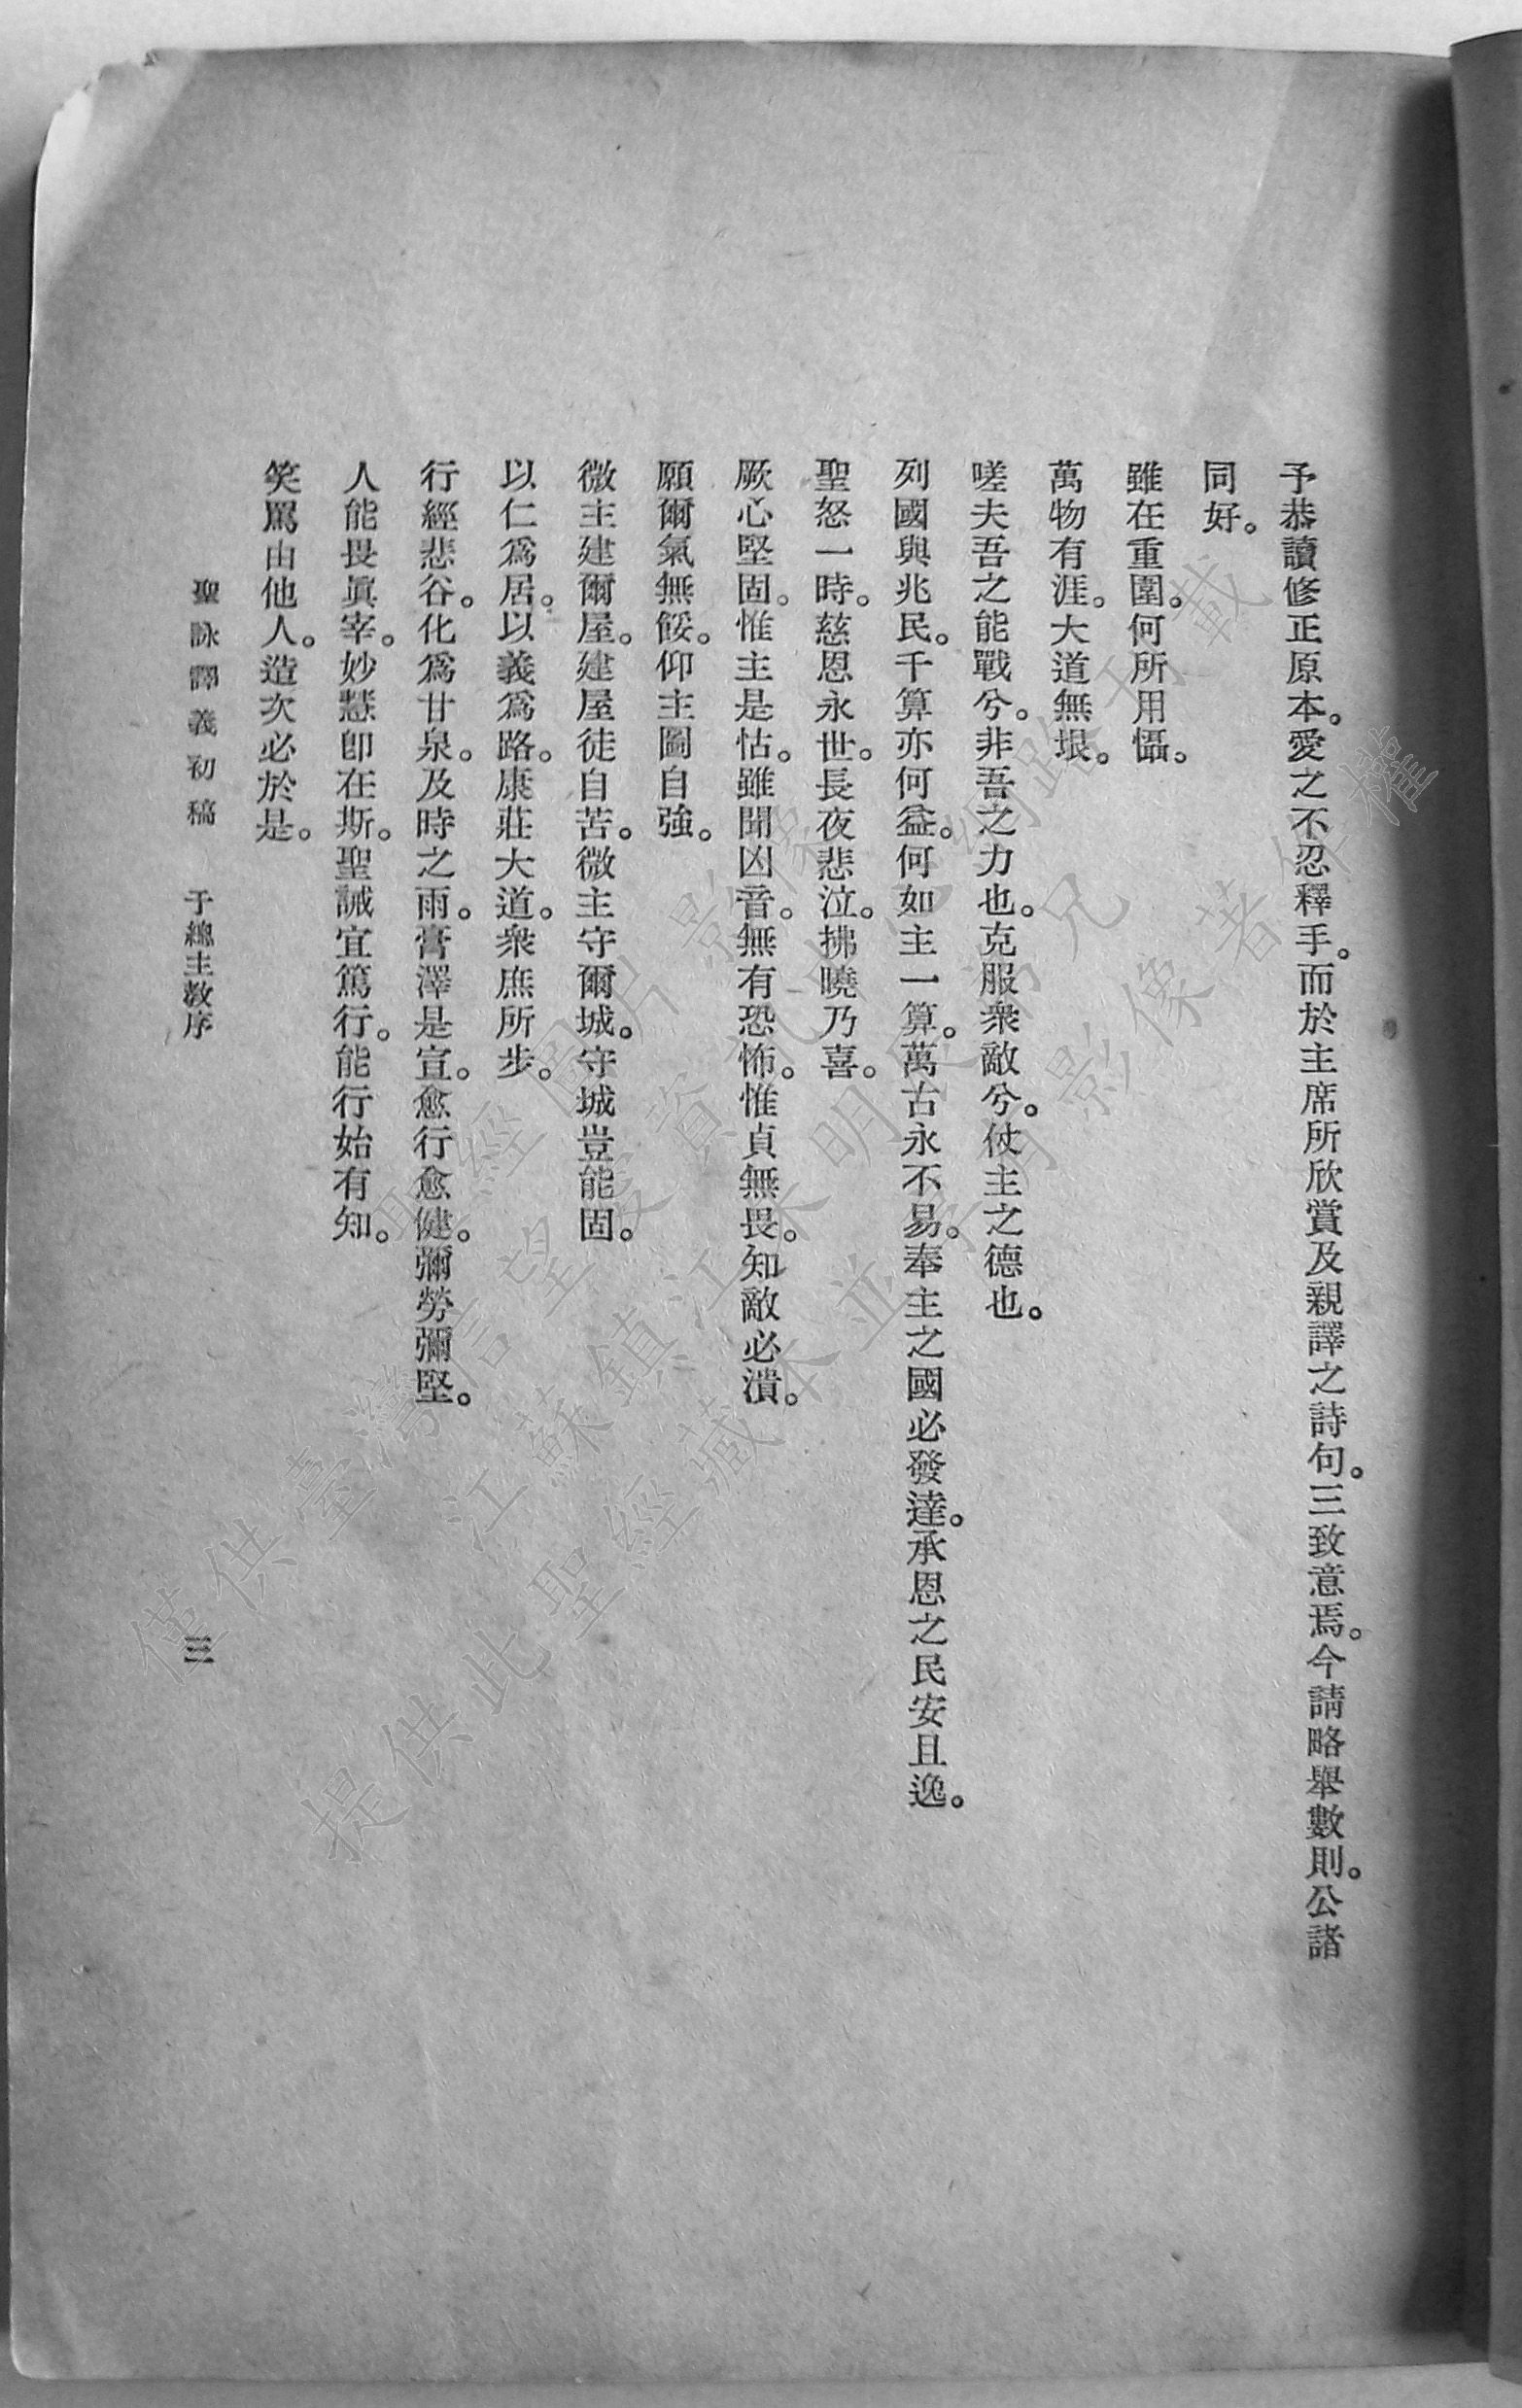 予恭讀修正原本。愛之不忍釋手。而於主席所欣賞及親譯之詩句。三致意焉。今請略舉數則。公諸
同好。
雖在重圍。何所用懾。
萬物有涯。大道無垠。
嗟夫吾之能戰兮。非吾之力也。克服衆敵兮。仗主之德也。
列國與兆民。千算亦何益。何如主一算。萬古永不易。奉主之國必發達。承恩之民安且逸。
聖怒一時。慈恩永世。長夜悲泣。拂曉乃喜。
厥心堅固。惟主是怙。雖聞凶音。無有恐怖。惟貞無畏。知敵必潰。
願爾氣無餒。仰主圖自強。
微主建爾屋。建屋徒自苦。微主守爾城。守城豈能固。
以仁爲居。以義爲路。康莊大道。衆庶所步。
行經悲谷。化爲甘泉。及時之雨。膏澤是宣。愈行愈健。彌勞彌堅。
人能畏眞宰。妙慧卽在斯。聖誡宜篤行。能行始有知。
笑罵由他人。造次必於是。
聖詠譯義初稿　于總主敎序　三
僅供臺灣信望愛資訊化網路刊載
聖經圖片影像
江蘇鎮江朱明 兄
提供此聖經藏本並 影像著作權